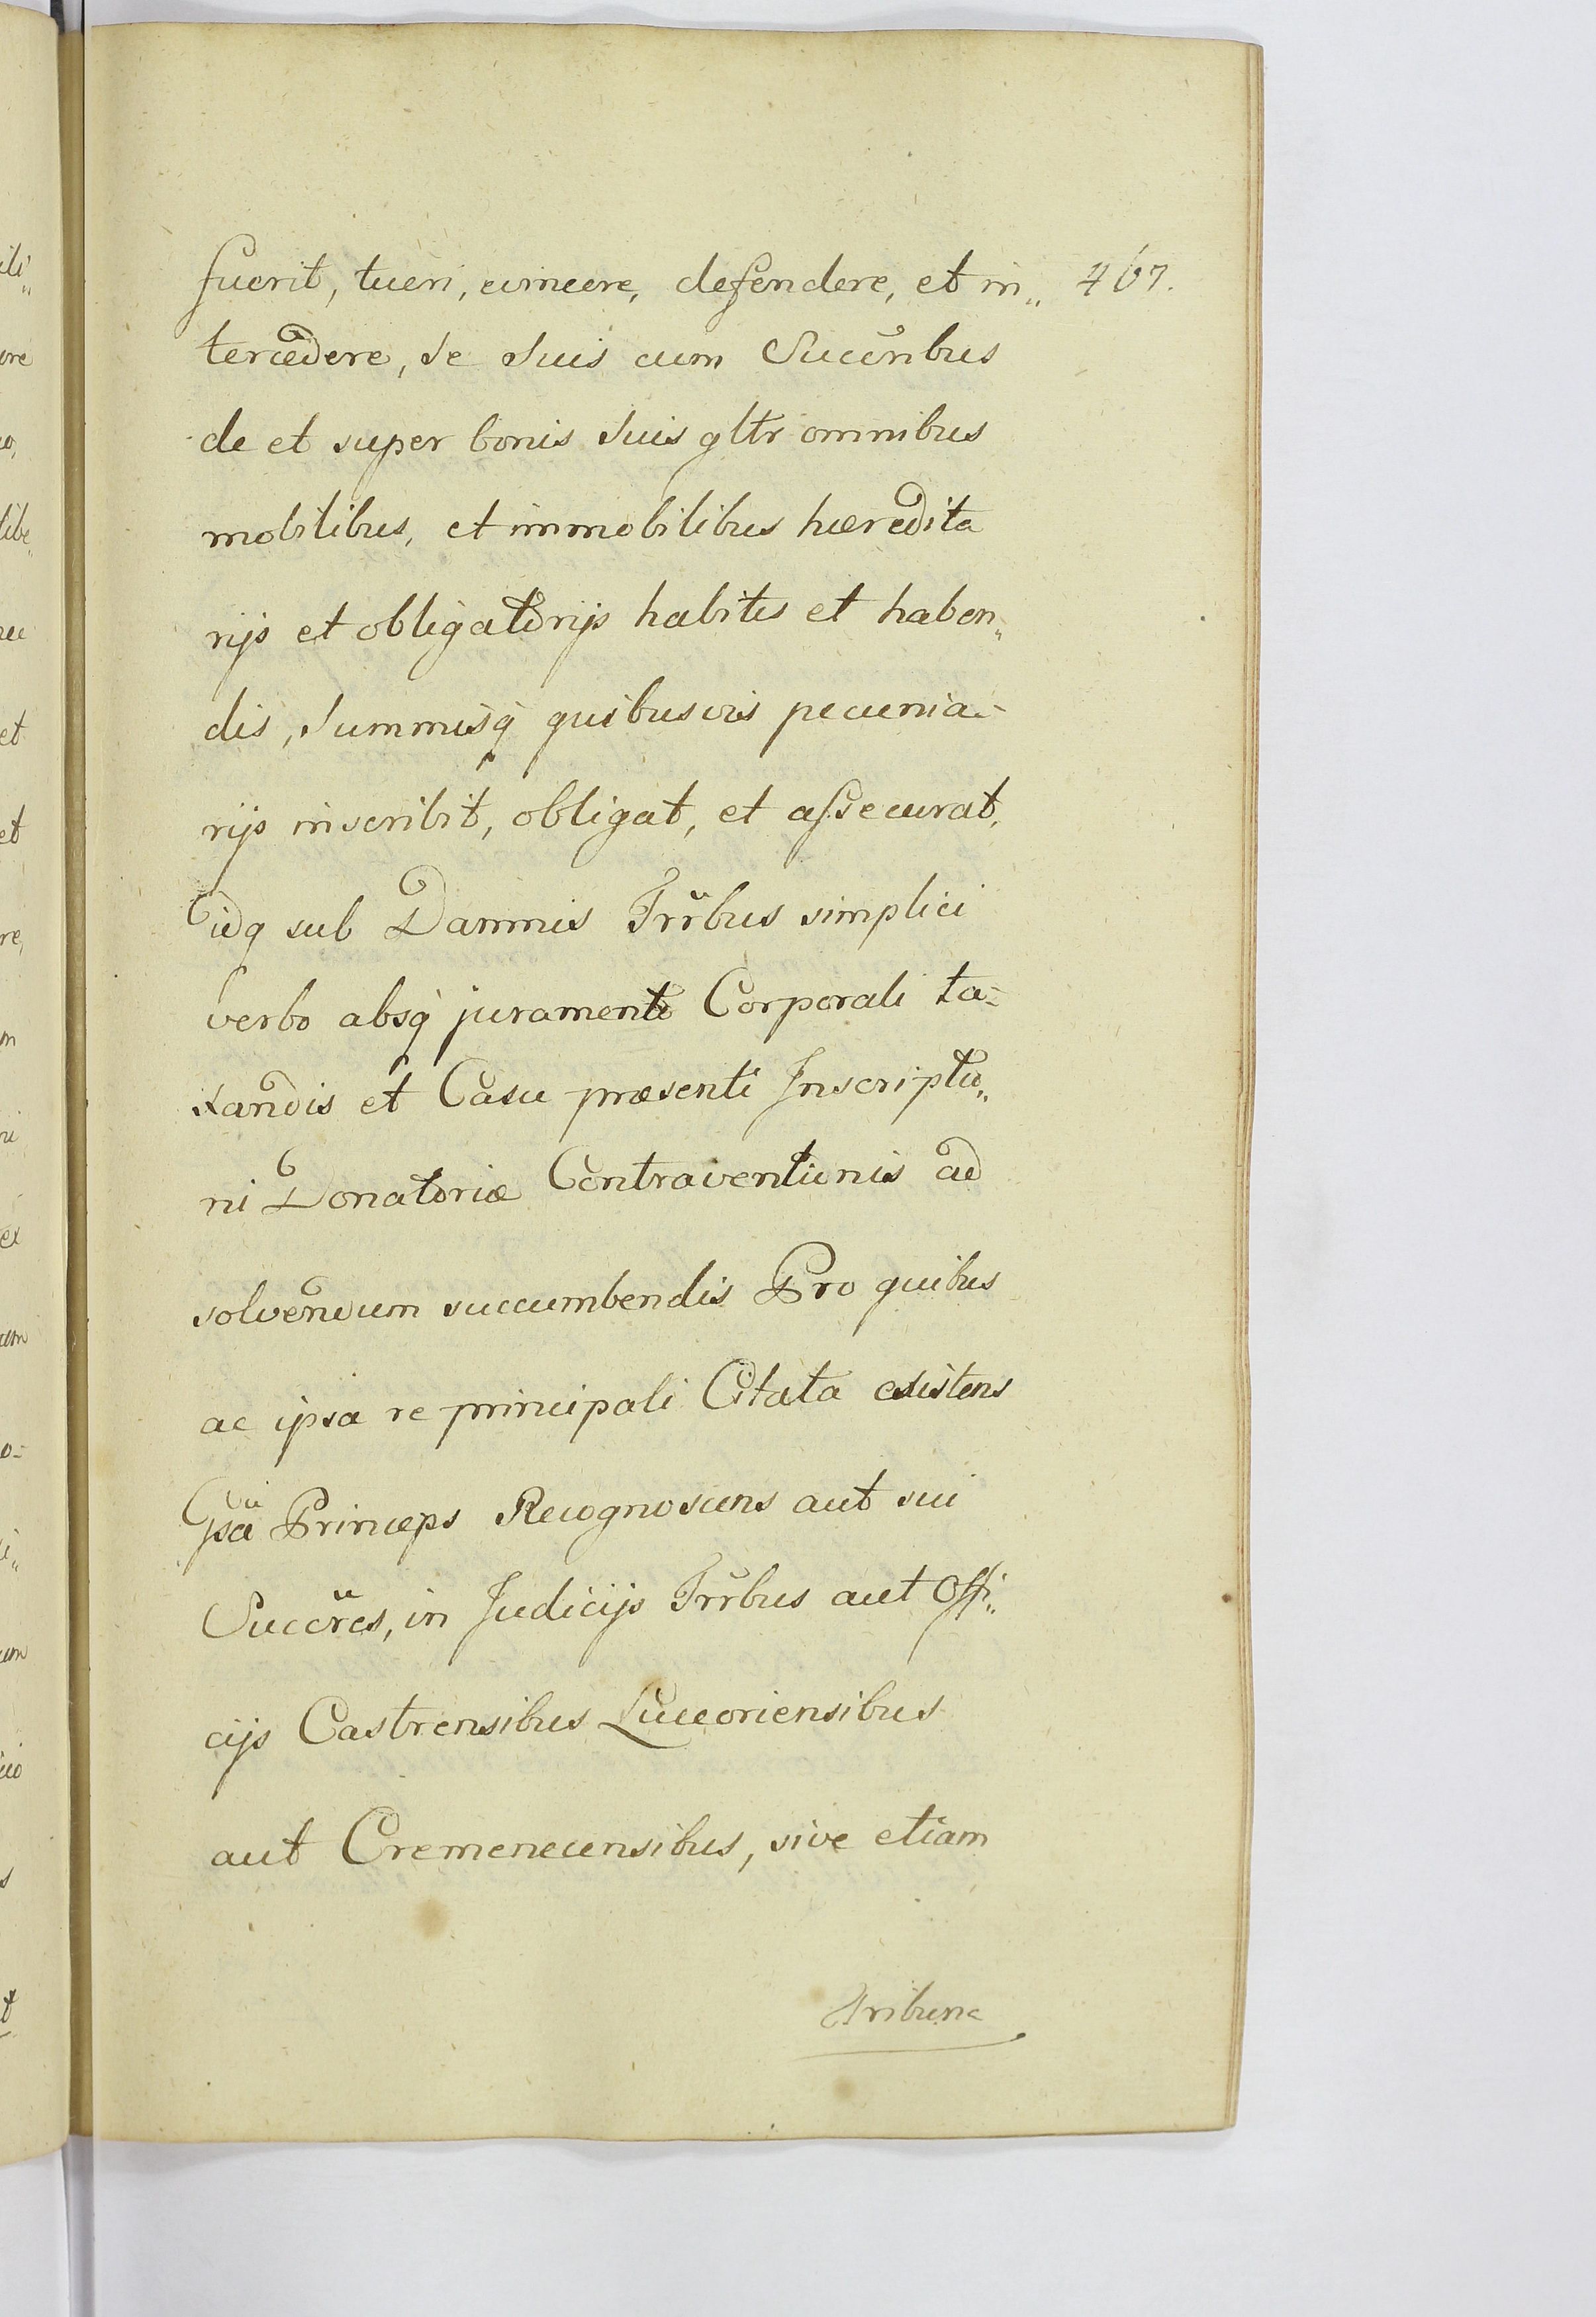 fuerit, tueri, evincere, defendere, et in„ 467.
tercedere, se suis cum Succ̃ribus
de et super bonis suis gltr omnibus
mobilibus, et immobilibus hæredita
rijs et obligatorijs habitis et haben„
dis, summisq̃ quibusvis pecunia-
rijs inscribit, obligat, et assecurat,
idq sub Damnis Trr̃bus simplici
verbo absq̃ juramento Corporali ta-
xandis et Casu præsenti Inscriptio„
ni Donatoriæ Contraventionis ad
solvendum succumbendis Pro quibus
ac ipsa re principali Citata existens
Ipsa Princeps Recognoscens aut sui
Succr̃es, in Judicijs Trr̃bus aut Offi„
cijs Castrensibus Luceoriensibus
aut Cremenecensibus, sive etiam
Tribuna